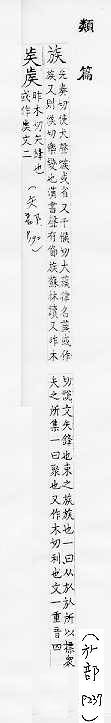 類篇
族 先奏切使犬聲族或省又千候切大蔟律名蔟或作
族又則候切樂變也漢書聲有節族蘇林讀又昨木
切說文矢鋒也束之族族也一曰从㫃㫃所以標衆
矢之所集一曰聚也又作木切利也文一重音四
(㫃部 P237)
昨木切矢鋒也
或作 文二
(矢部 P190)